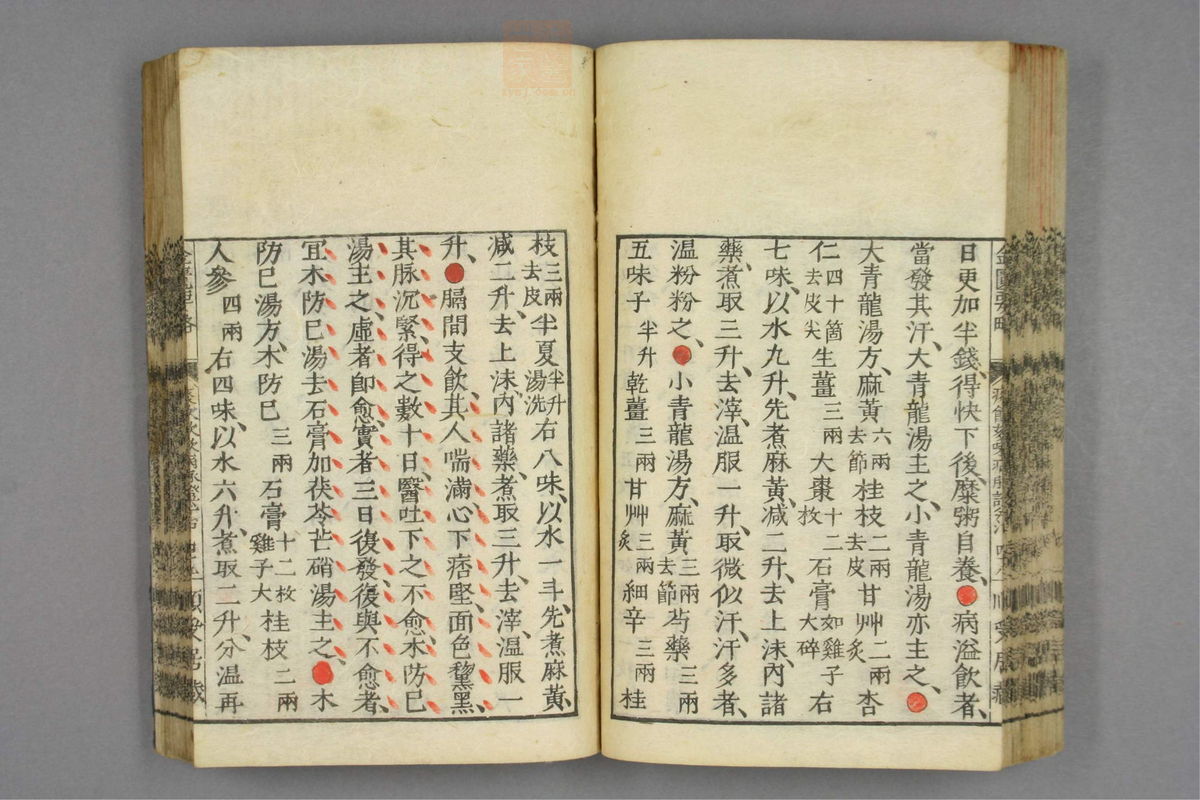 日更加半錢、得快下後、糜粥自養、●病溢飲者、
當發其汗、大青龍湯主之、小青龍湯亦主之、●
大青龍湯方、麻黃六兩去節桂枝二兩去皮甘艸二兩炙杏
仁四十箇去皮尖生薑三兩大棗十二枚石膏如雞子大碎右
七味、以水九升、先煮麻黃、減二升、去上沫、內諸
藥、煮取三升、去滓、溫服一升、取微似汗、汗多者、
溫粉粉之、●小青龍湯方、麻黃三兩去節芍藥三兩
五味子半升乾薑三兩甘艸三兩炙細辛三兩桂
枝三兩去皮半夏半升湯洗右八味、以水一斗、先煮麻黃、
減二升、去上沫、內諸藥、煮取三升、去滓、溫服一
升、●膈間支飲、其人喘滿、心下痞堅、面色黧黑、
其脉沉緊、得之數十日、醫吐下之不愈、木防己
湯主之、虛者卽愈、實者三日復發、復與不愈者、
宜木防己湯去石膏加茯苓芒硝湯主之、●木
防己湯方、木防己三兩石膏十二枚雞子大桂枝二兩
人參四兩右四味、以水六升、煮取二升、分溫再